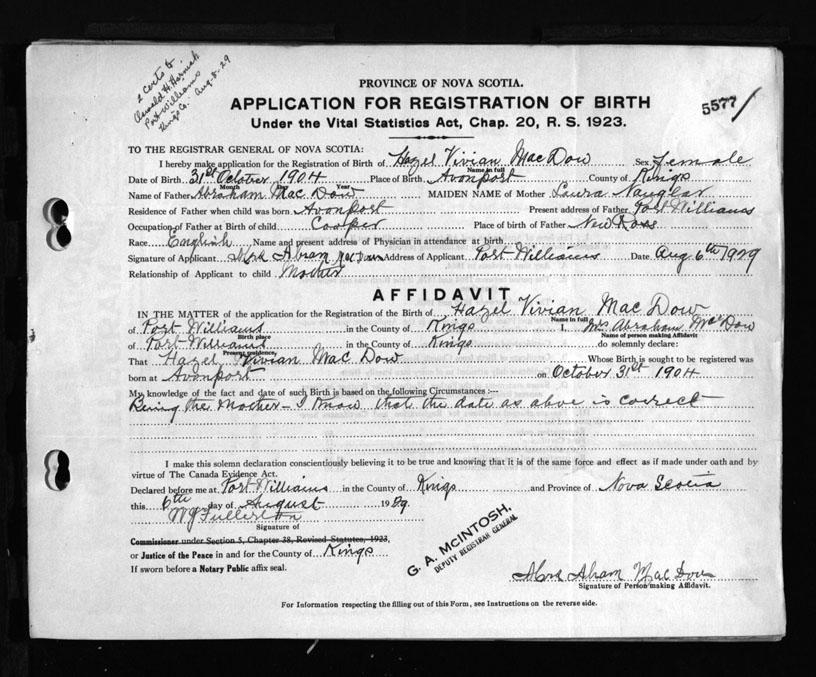 2 Certs to
Oswald H. Harnish
Port Williams
Kings Co. Aug-8-29
PROVINCE OF NOVA SCOTIA.
APPLICATION FOR REGISTRATION OF BIRTH
5577/
Under the Vital Statistics Act, Chap. 20, R. S. 1923.
TO THE REGISTRAR GENERAL OF NOVA SCOTIA:
I hereby make application for the Registration of Birth of Hazel Vivian Mac Dow Sex Female
Name in full
Date of Birth 31st October 1904 Place of Birth Avonport County of Kings
Month Day Year
Name of Father Abraham Mac Dow MAIDEN NAME of Mother Laura Nauglar
Residence of Father when child was born Avonport Present address of Father Port Williams
Occupation of Father at Birth of child Cooper Place of birth of Father New Ross
Race English Name and present address of Physician in attendance at birth
Signature of Applicant Mrs Abram Mac Dow Address of Applicant Port Williams Date Aug 6th 1929
Relationship of Applicant to child Mother
AFFIDAVIT
IN THE MATTER of the application for the Registration of the Birth of Hazel Vivian Mac Dow
Name in full
of Port Williams in the County of Kings I, Mrs Abraham Mc Dow
Birth place Name of person making Affidavit
of Port Williams in the County of Kings do solemnly declare:
Present residence,
That Hazel Vivian Mac Dow Whose Birth is sought to be registered was
born at Avonport on October 31st 1904
My knowledge of the fact and date of such Birth is based on the following Circumstances :—
Being the Mother - I know that the date as above is correct
I make this solemn declaration conscientiously believing it to be true and knowing that it is of the same force and effect as if made under oath and by
virtue of The Canada Evidence Act.
Declared before me at Port Williams in the County of Kings and Province of Nova Scotia
this 6th day of August 1929.
W J Fullerton
Signature of
Commissioner under Section 5, Chapter 38, Revised Statutes, 1923,
or Justice of the Peace in and for the County of Kings
If sworn before a Notary Public affix seal.
G. A. MCINTOSH,
DEPUTY REGISTRAR GENERAL
Mrs Abram Mac Dow
Signature of Person making Affidavit.
For Information respecting the filling out of this Form, see Instructions on the reverse side.